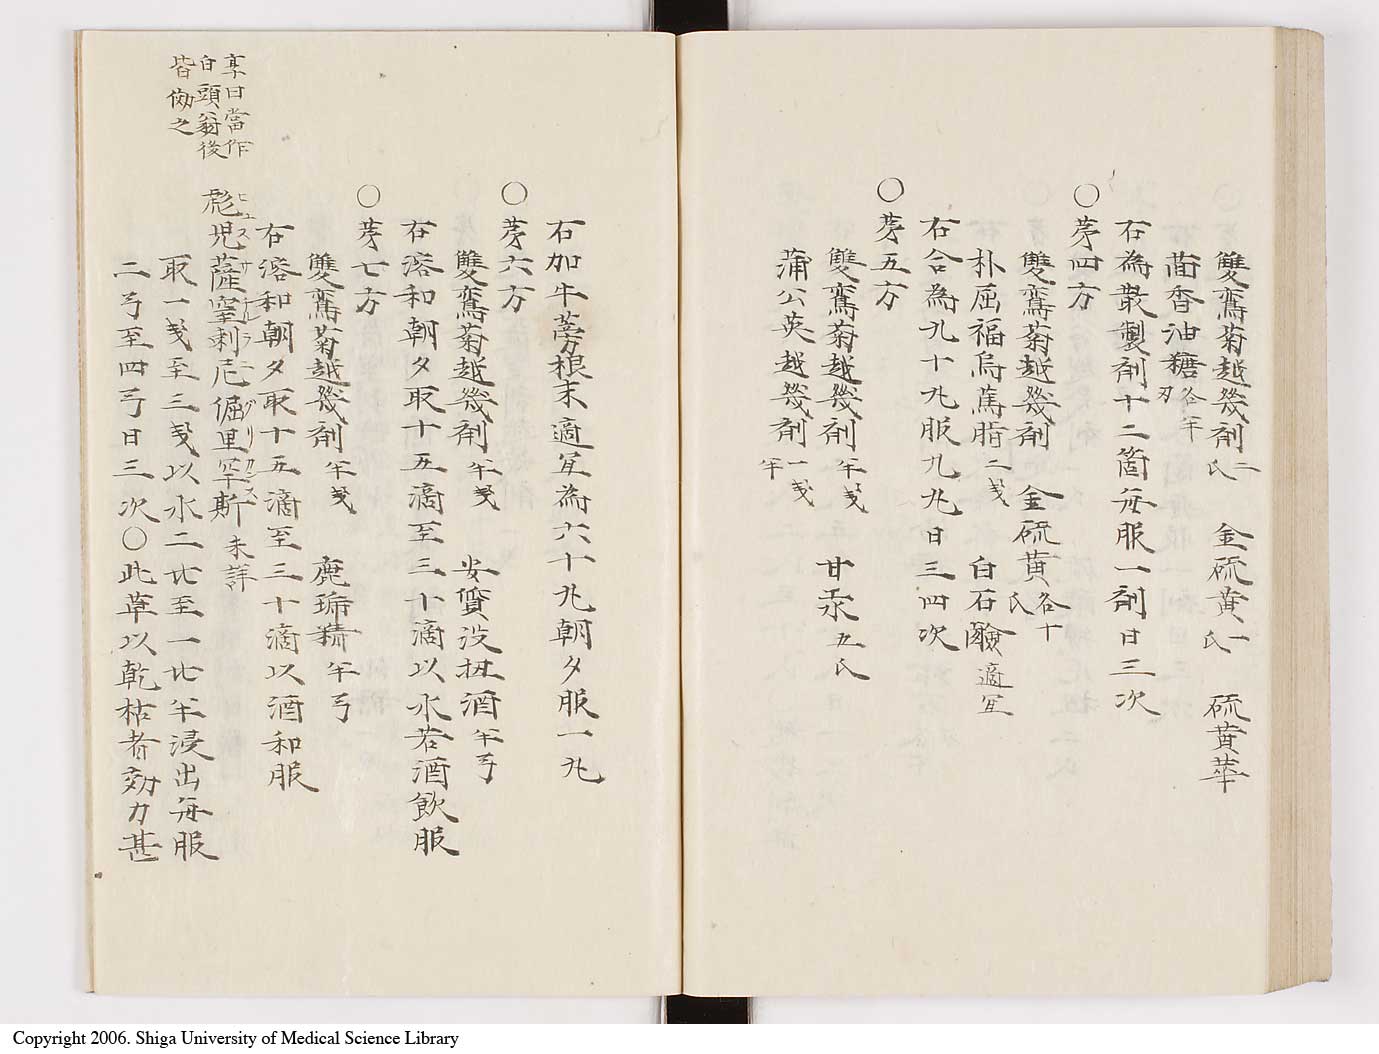 雙鸞菊越幾剤二氏 金硫黄一氏 硫黄華
茴香油糖各半刄
右為散製剤十二箇毎服一剤日三次
○第四方
雙鸞菊越幾剤 金硫黄各十氏
朴屈福烏篤脂二戔 白石鹸適宜
右合為九十丸服九丸日三四次
○第五方
雙鸞菊越幾剤半戔 甘汞五氏
蒲公英越幾剤一戔半
右加牛蒡根末適宜為六十丸朝夕服一丸
○第六方
雙鸞菊越幾剤半戔 安質没扭酒半弓
右溶和朝夕取十五滴至三十滴以水若酒飲服
○第七方
雙鸞菊越幾剤半戔 鹿琋精半弓
右溶和朝夕取十五滴至三十滴以酒和服
彪児薩窣刺尼倔里罕斯未詳
取一戔至三戔以水二比至一比半浸出毎服
二弓至四弓日三次○此草以乾枯者効力甚
享曰當作
白頭翁後
皆倣之
Copyright 2006. Shiga University of Medical Science Library